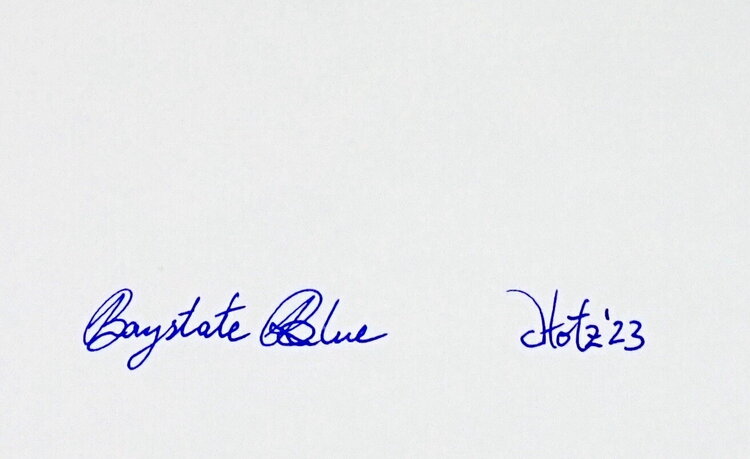 Baystate Blue Hotz '23